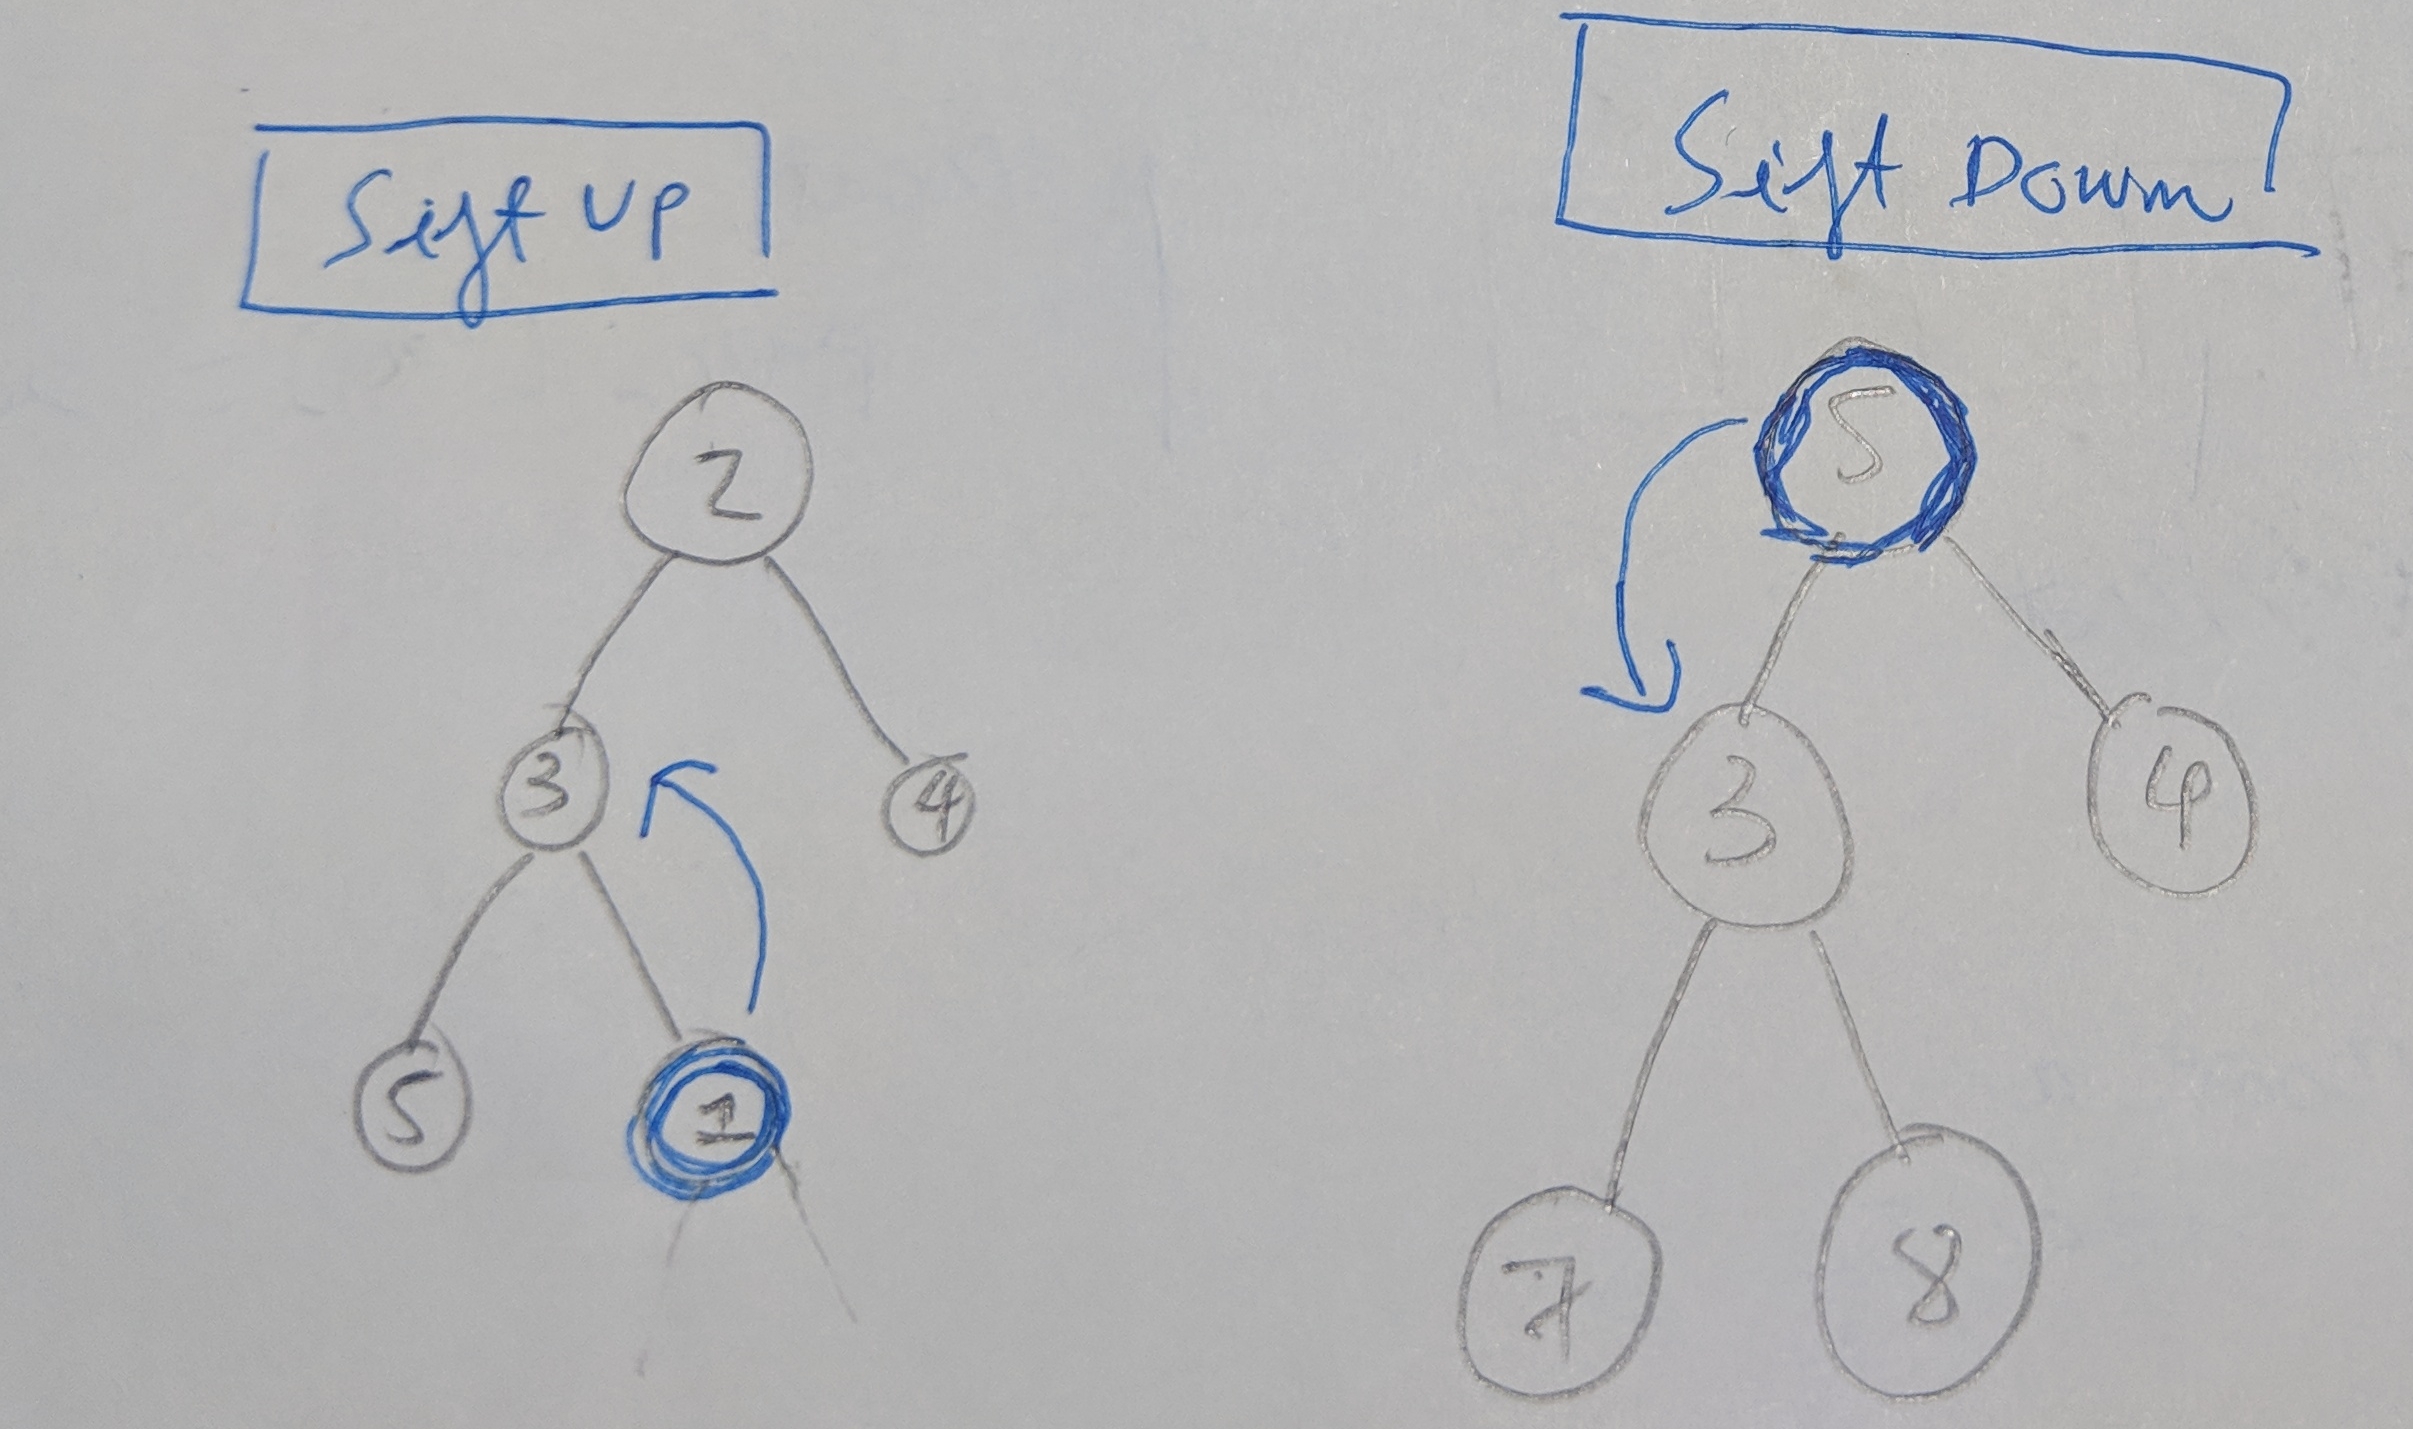 Sift Up
2
3
4
5
1
Sift Down
5
3
4
7
8